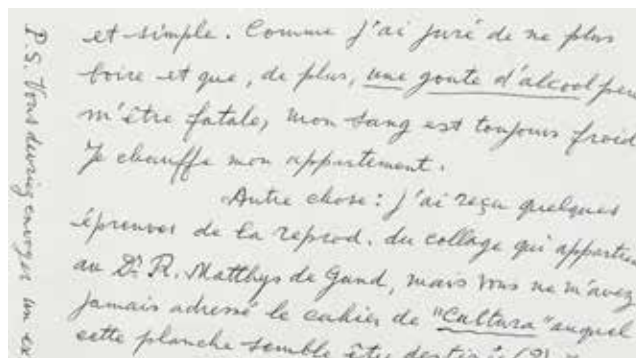 et simple. Comme j'ai juré de ne plus
boire et que, de plus, une goute d'alcool peu
m'être fatale, mon sang est toujours froid
Je chauffe mon appartement.
Autre chose : j'ai reçu quelques
épreuves de la reprod. du collage qui appartien
au Dr R. Matthys de Gand, mais vous ne m'avez
jamais adressé le cahier de "Cultura" auquel
cette planche semble être destinée (?)
P.S. Vous devriez envoyer un ex